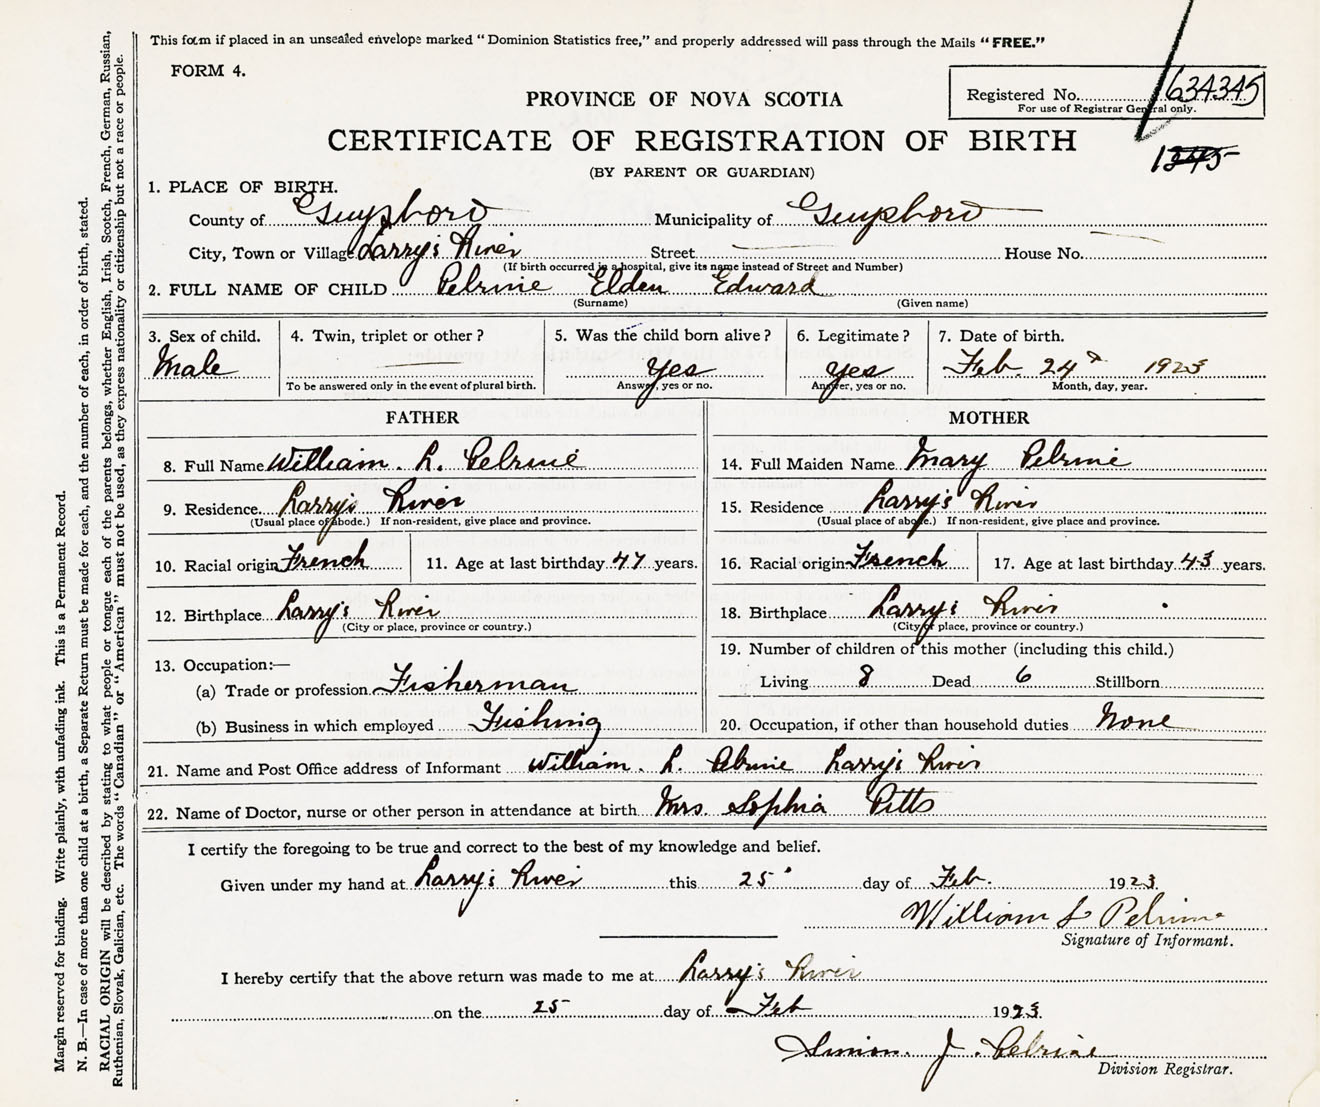 This form if placed in an unsealed envelope marked "Dominion Statistics free," and properly addressed will pass through the Mails "FREE."
FORM 4.
Registered No. 634345
For use of Registrar General only.
PROVINCE OF NOVA SCOTIA
CERTIFICATE OF REGISTRATION OF BIRTH
1345
(BY PARENT OR GUARDIAN)
1. PLACE OF BIRTH.
County of Guysboro Municipality of Guysboro
City, Town or Village Larry's River Street House No.
(If birth occurred in a hospital, give its name instead of Street and Number)
2. FULL NAME OF CHILD Pelrine Elden Edward
(Surname) (Given name)
3. Sex of child. 4. Twin, triplet or other? 5. Was the child born alive? 6. Legitimate? 7. Date of birth.
Male Yes Yes Feb. 24 1923
To be answered only in the event of plural birth. Answer, yes or no. Answer, yes or no. Month, day, year.
FATHER MOTHER
8. Full Name William. L. Pelrine 14. Full Maiden Name Mary Pelrine
9. Residence Larry's River 15. Residence Larry's River
(Usual place of abode.) If non-resident, give place and province. (Usual place of abode.) If non-resident, give place and province.
10. Racial origin French 11. Age at last birthday 47 years. 16. Racial origin French 17. Age at last birthday 43 years.
12. Birthplace Larry's River 18. Birthplace Larry's River
(City or place, province or country.) (City or place, province or country.)
13. Occupation:— 19. Number of children of this mother (including this child.)
(a) Trade or profession Fisherman Living 8 Dead 6 Stillborn
(b) Business in which employed Fishing 20. Occupation, if other than household duties None
21. Name and Post Office address of Informant William. L. Pelrine Larry's River
22. Name of Doctor, nurse or other person in attendance at birth Mrs. Sophia Pitts
I certify the foregoing to be true and correct to the best of my knowledge and belief.
Given under my hand at Larry's River this 25 day of Feb. 1923
William L Pelrine
Signature of Informant.
I hereby certify that the above return was made to me at Larry's River
on the 25 day of Feb 1923.
Simon. J. Pelrine
Division Registrar.
Margin reserved for binding. Write plainly, with unfading ink. This is a Permanent Record.
N. B.—In case of more than one child at a birth, a Separate Return must be made for each, and the number of each, in order of birth, stated.
RACIAL ORIGIN will be described by stating to what people or tongue each of the parents belongs, whether English, Irish, Scotch, French, German, Russian,
Ruthenian, Slovak, Galician, etc. The words "Canadian" or "American" must not be used, as they express nationality or citizenship but not a race or people.